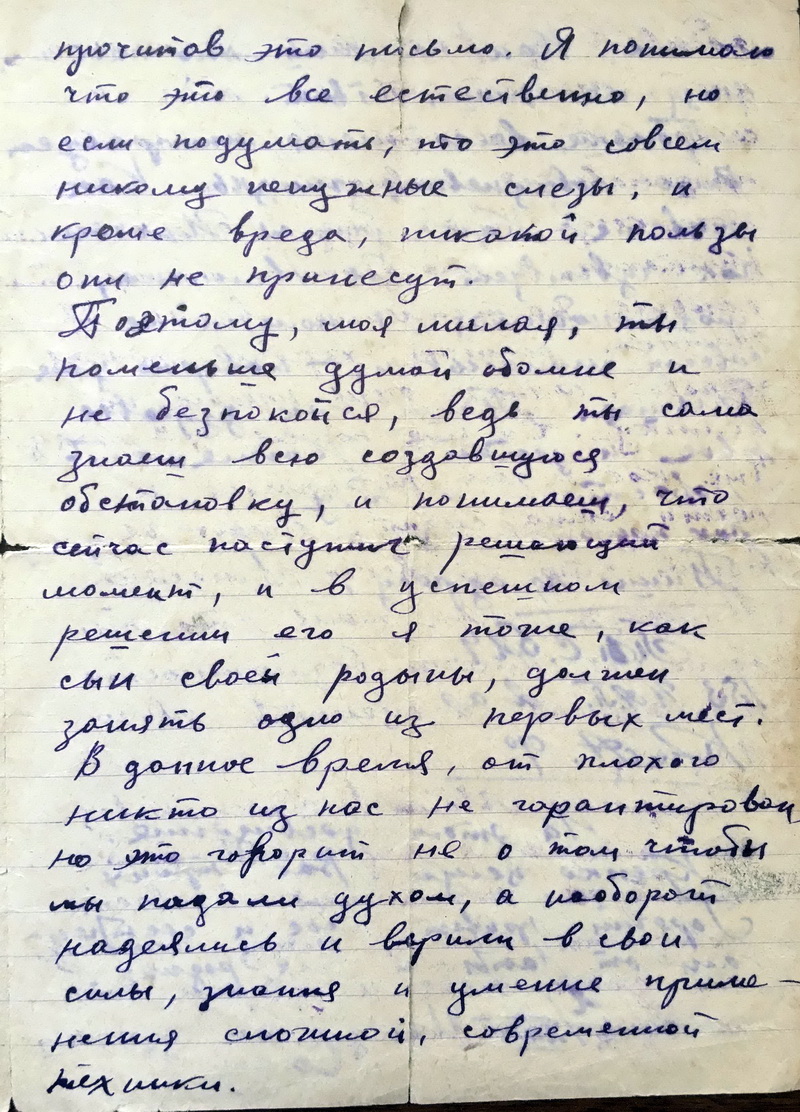 прочитав это письмо. Я понимаю
что это все естественно, но
если подумать, что это совсем
никому ненужные слезы, и
кроме вреда, никакой пользы
они не принесут.
Поэтому, моя милая, ты
поменьше думай обомне и
не безпокойся, ведь ты сама
знаеш всю создавшуюся
обстановку, и понимаеш, что
сейчас наступил решающий
момент, и в успешном
решении его я тоже, как
сын своей родины, должен
занять одно из первых мест.
В данное время, от плохого
никто из нас не гарантирован
но это говорит не о том чтобы
мы падали духом, а наоборот
надеялись и верили в свои
силы, знания и умение приме-
нения сложной, современной
техники.